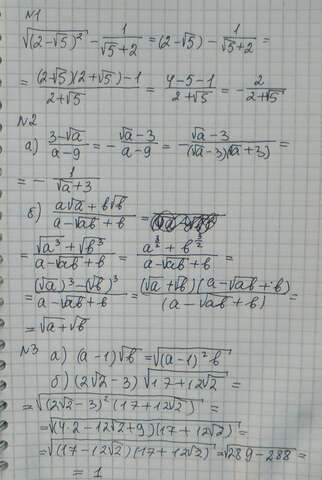 N1
√((2-√5)²) - 1/(√5+2) = (2-√5) - 1/(√5+2) =
= ((2-√5)(2+√5)-1)/(2+√5) = (4-5-1)/(2+√5) = - 2/(2+√5)
N2
а) (3-√a)/(a-9) = - (√a-3)/(a-9) = - (√a-3)/((√a-3)(√a+3)) =
= - 1/(√a+3)
б) (a√a+b√b)/(a-√ab+b) =
= (√a³+√b³)/(a-√ab+b) = (a^(3/2)+b^(3/2))/(a-√ab+b) =
= ((√a)³-(√b)³)/(a-√ab+b) = ((√a+√b)(a-√ab+b))/(a-√ab+b) =
= √a+√b
N3 а) (a-1)√b = √((a-1)²b)
б) (2√2-3)√(17+12√2) =
= √((2√2-3)²(17+12√2)) =
= √((4·2-12√2+9)(17+12√2)) =
= √((17-12√2)(17+12√2)) = √(289-288) =
= 1